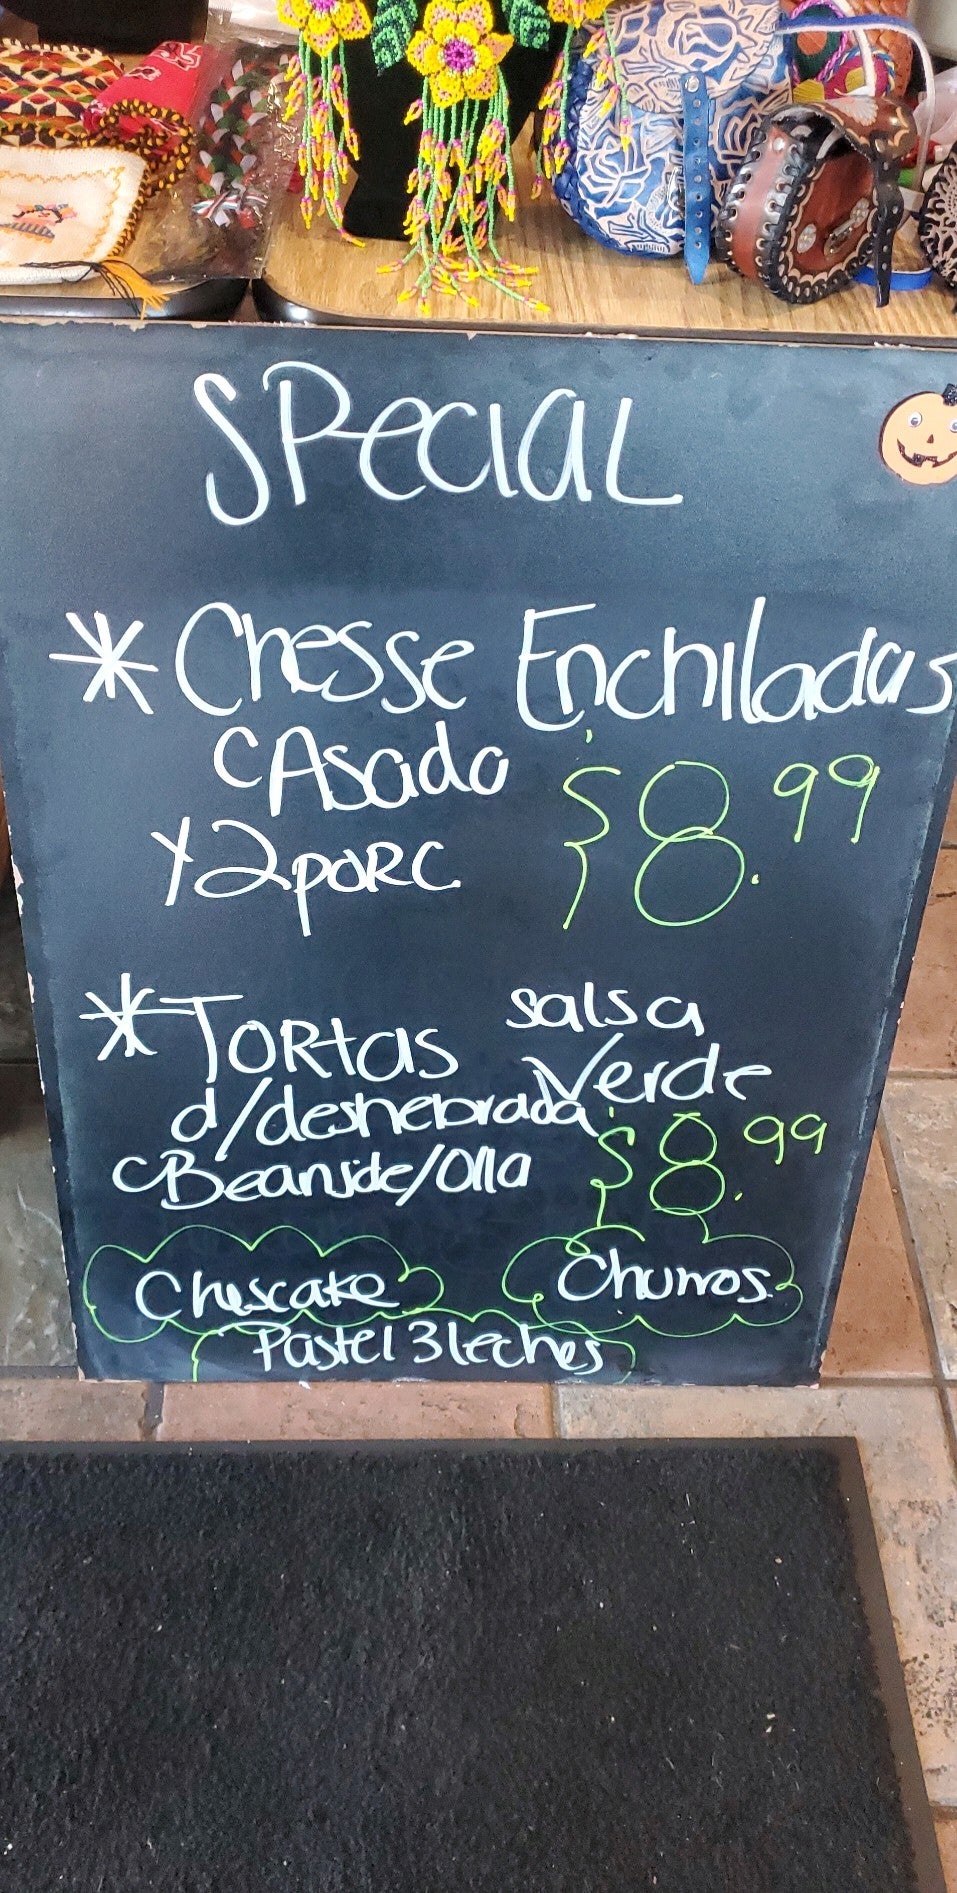 SPecial
* Chesse Enchiladas
c Asado $8.99
y 2 porc
* TORtas salsa
Verde
d/deshebrada $8.99
c Beanside/Olla
Chescake Churros.
Pastel 3 leches